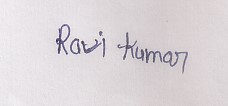 Ravi Kumar